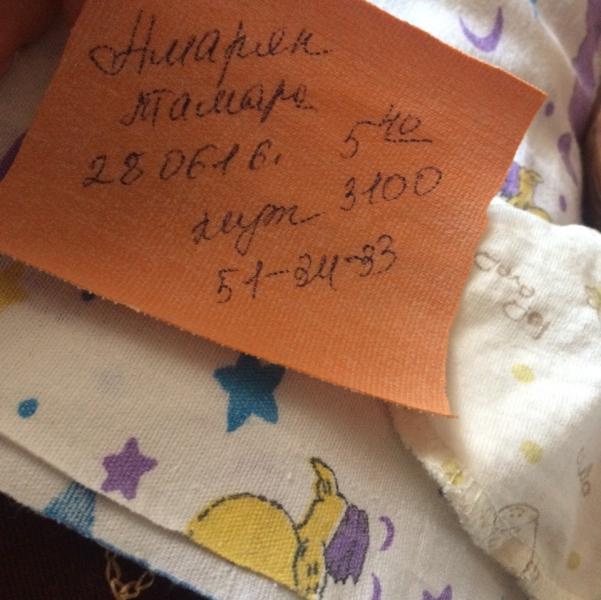 Нмарян
Тамара
28 06 16. 5 40
муж 3100
51-34-33